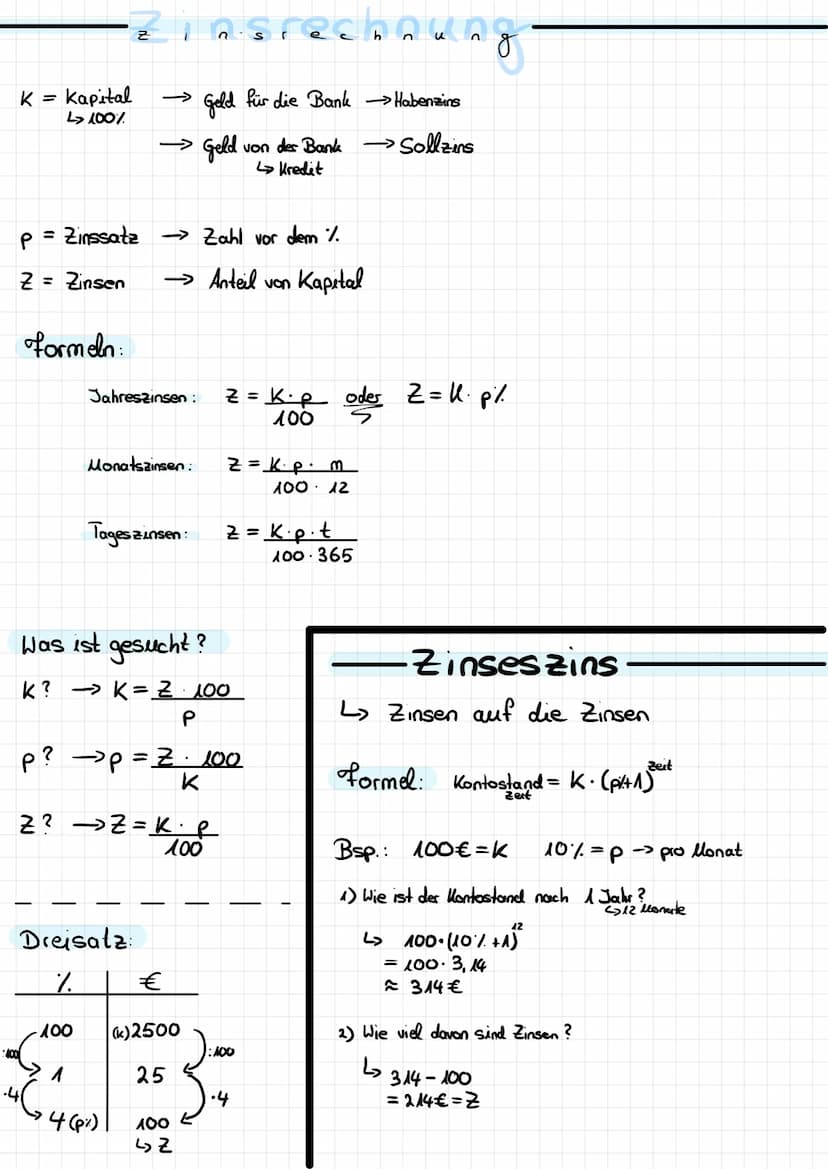 Zinsrechnung
K = Kapital → Geld für die Bank → Habenzins
↳ 100%
→ Geld von der Bank → Sollzins
↳ Kredit
p = Zinssatz → Zahl vor dem %
Z = Zinsen → Anteil von Kapital
Formeln:
Jahreszinsen: Z = K · p / 100 oder Z = K · p%
Monatszinsen: Z = K · p · m / 100 · 12
Tageszinsen: Z = K · p · t / 100 · 365
Was ist gesucht?
K? → K = Z · 100 / p
p? → p = Z · 100 / K
Z? → Z = K · p / 100
Dreisatz:
% | €
100 | (K) 2500
:100 :100
1 | 25
·4 ·4
4 (p%) | 100
↳ Z
Zinseszins
↳ Zinsen auf die Zinsen
Formel: Kontostand = K · (p%+1)^Zeit
Zeit
Bsp.: 100€ = K 10% = p → pro Monat
1) Wie ist der Kontostand nach 1 Jahr?
↳ 12 Monate
↳ 100 · (10% + 1)^12
= 100 · 3,14
≈ 314€
2) Wie viel davon sind Zinsen?
↳ 314 - 100
= 214€ = Z